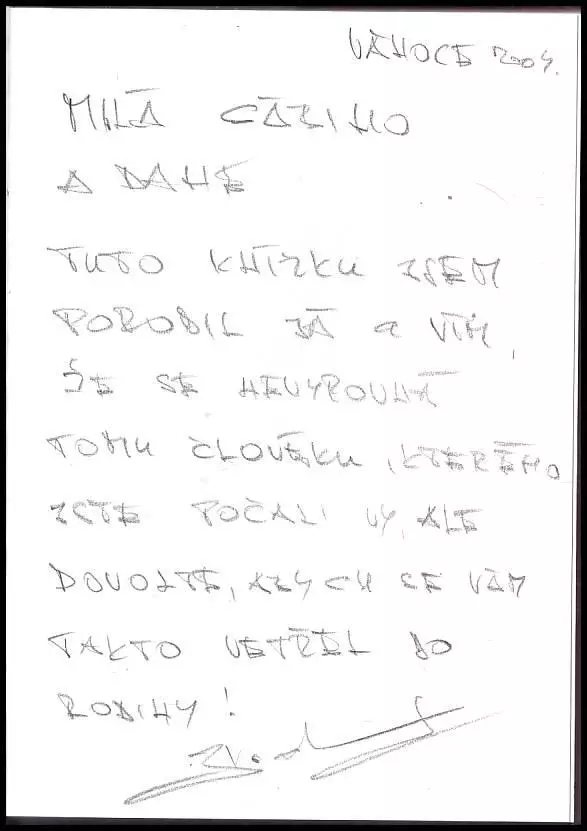 VÁNOCE 2004.
MILÁ CÁZINO
A DANE
TUTO KNÍZKU JSEM
PORODIL JÁ a VÍM,
ŽE SE NEVYROVNÁ
TOMU ČLOVĚKU, KTERÉHO
JSTE POČALI VY, ALE
DOVOLTE, ABYCH SE VÁM
TAKTO VETŘEL DO
RODINY!